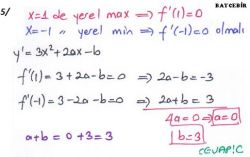 BATCEBİR
5/ x=1 de yerel max ⇒ f'(1)=0
x=-1 " yerel min ⇒ f'(-1)=0 olmalı
y'=3x²+2ax-b
f'(1)=3+2a-b=0 ⇒ 2a-b=-3
f'(-1)=3-2a-b=0 ⇒ 2a+b=3
4a=0 ⇒ a=0
a+b=0+3=3
b=3
CEVAP:C